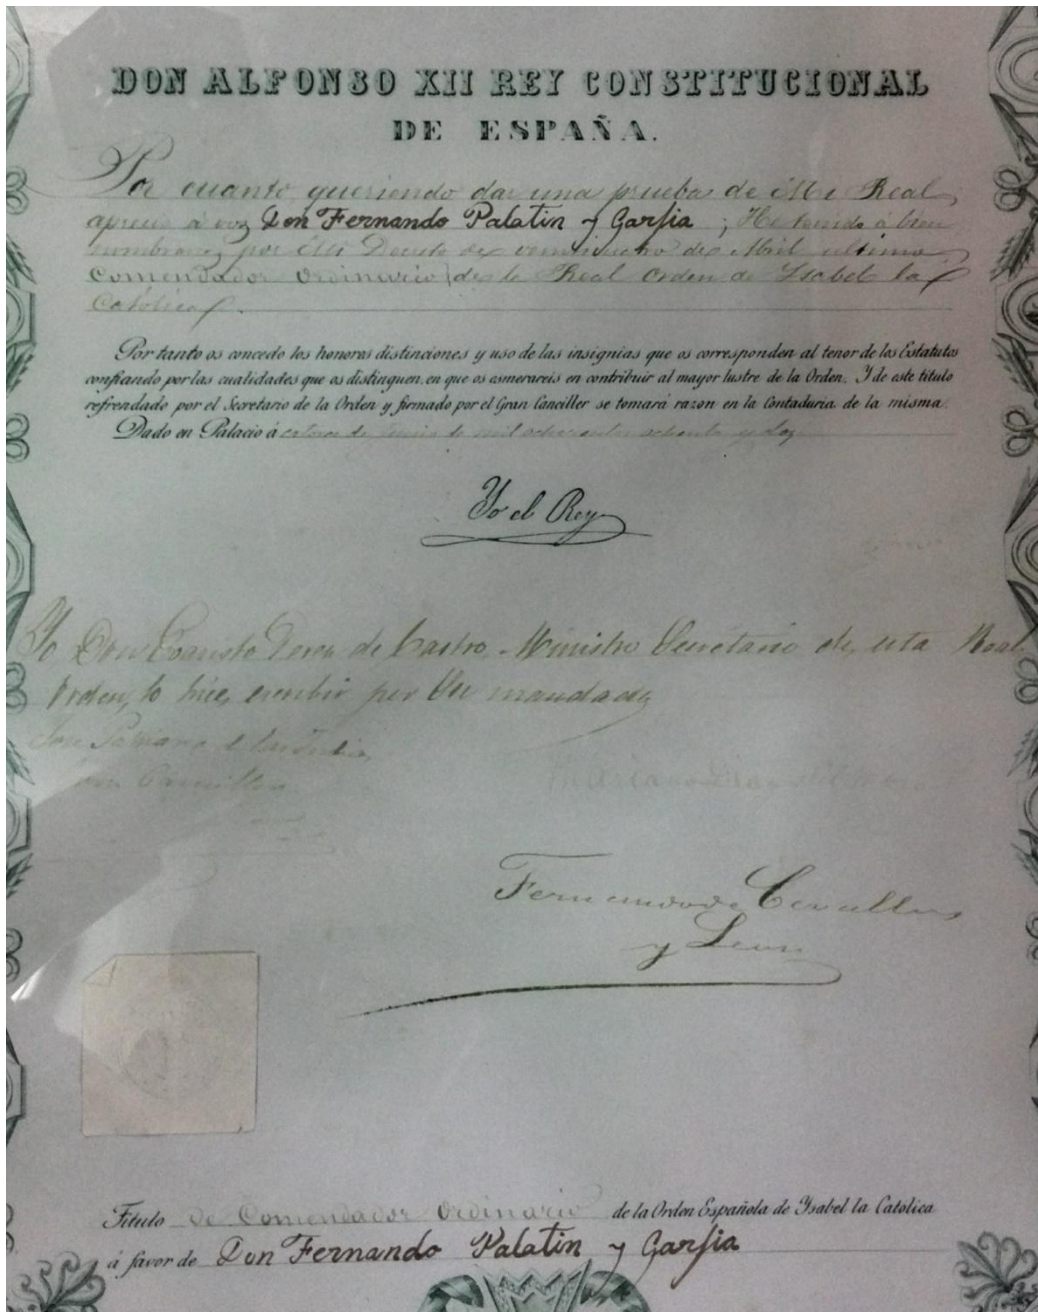 DON ALFONSO XII REY CONSTITUCIONAL
DE ESPAÑA.
Por cuanto queriendo dar una prueba de Mi Real
aprecio á vos Don Fernando Palatin y Garfia ; He tenido á bien
nombraros por Mi Decreto de veintiocho de Abril ultimo
Comendador Ordinario de la Real Orden de Isabel la
Católica.
Por tanto os concedo los honores distinciones y uso de las insignias que os corresponden al tenor de los Estatutos
confiando por las cualidades que os distinguen, en que os esmerareis en contribuir al mayor lustre de la Orden. Y de este titulo
refrendado por el Secretario de la Orden y firmado por el Gran Canciller se tomará razon en la Contaduria de la misma.
Dado en Palacio á catorce de Junio de mil ochocientos ochenta y dos
Yo el Rey
Yo Don Evaristo Perez de Castro, Ministro Secretario de esta Real
Orden, lo hice escribir por Su mandado
Gran Canciller
Mariano Diaz del Moral
Fernando de Cevallos
y Leon
Título de Comendador Ordinario de la Orden Española de Ysabel la Católica
á favor de Don Fernando Palatin y Garfia